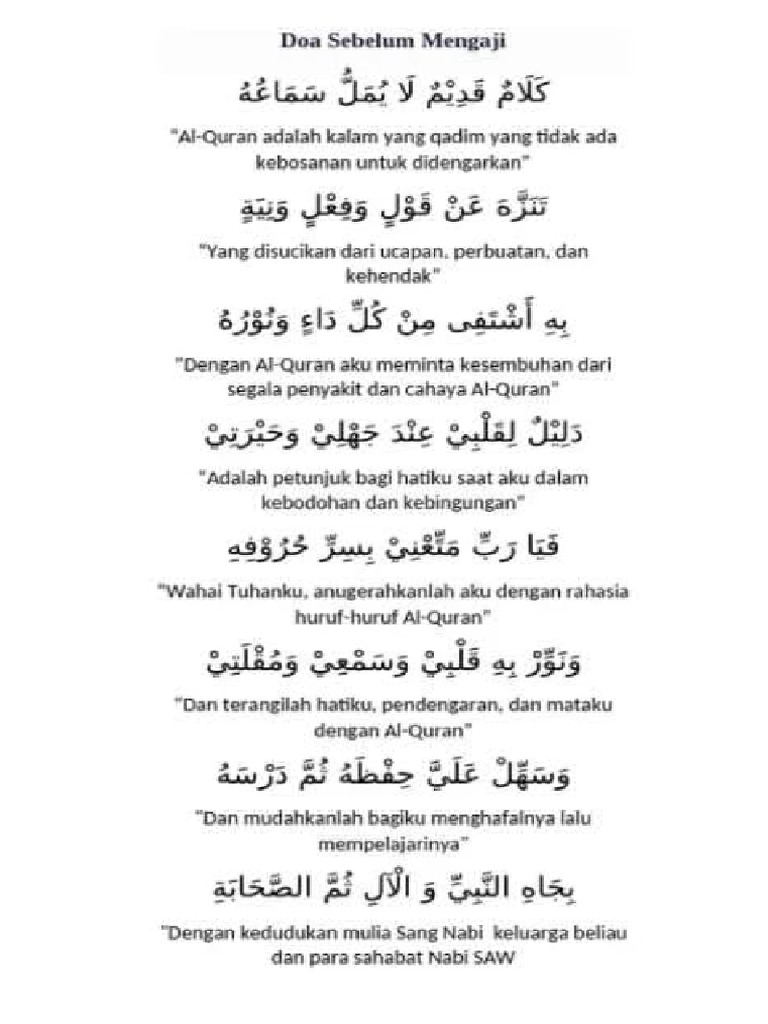 Doa Sebelum Mengaji
كَلَامٌ قَدِيْمٌ لَا يُمَلُّ سَمَاعُهُ
"Al-Quran adalah kalam yang qadim yang tidak ada
kebosanan untuk didengarkan"
تَنَزَّهَ عَنْ قَوْلٍ وَفِعْلٍ وَنِيَةٍ
"Yang disucikan dari ucapan, perbuatan, dan
kehendak"
بِهِ أَشْتَفِى مِنْ كُلِّ دَاءٍ وَنُوْرُهُ
"Dengan Al-Quran aku meminta kesembuhan dari
segala penyakit dan cahaya Al-Quran"
دَلِيْلٌ لِقَلْبِيْ عِنْدَ جَهْلِيْ وَحَيْرَتِيْ
"Adalah petunjuk bagi hatiku saat aku dalam
kebodohan dan kebingungan"
فَيَا رَبِّ مَتِّعْنِيْ بِسِرِّ حُرُوْفِهِ
"Wahai Tuhanku, anugerahkanlah aku dengan rahasia
huruf-huruf Al-Quran"
وَنَوِّرْ بِهِ قَلْبِيْ وَسَمْعِيْ وَمُقْلَتِيْ
"Dan terangilah hatiku, pendengaran, dan mataku
dengan Al-Quran"
وَسَهِّلْ عَلَيَّ حِفْظَهُ ثُمَّ دَرْسَهُ
"Dan mudahkanlah bagiku menghafalnya lalu
mempelajarinya"
بِجَاهِ النَّبِيِّ وَ الْآلِ ثُمَّ الصَّحَابَةِ
"Dengan kedudukan mulia Sang Nabi keluarga beliau
dan para sahabat Nabi SAW